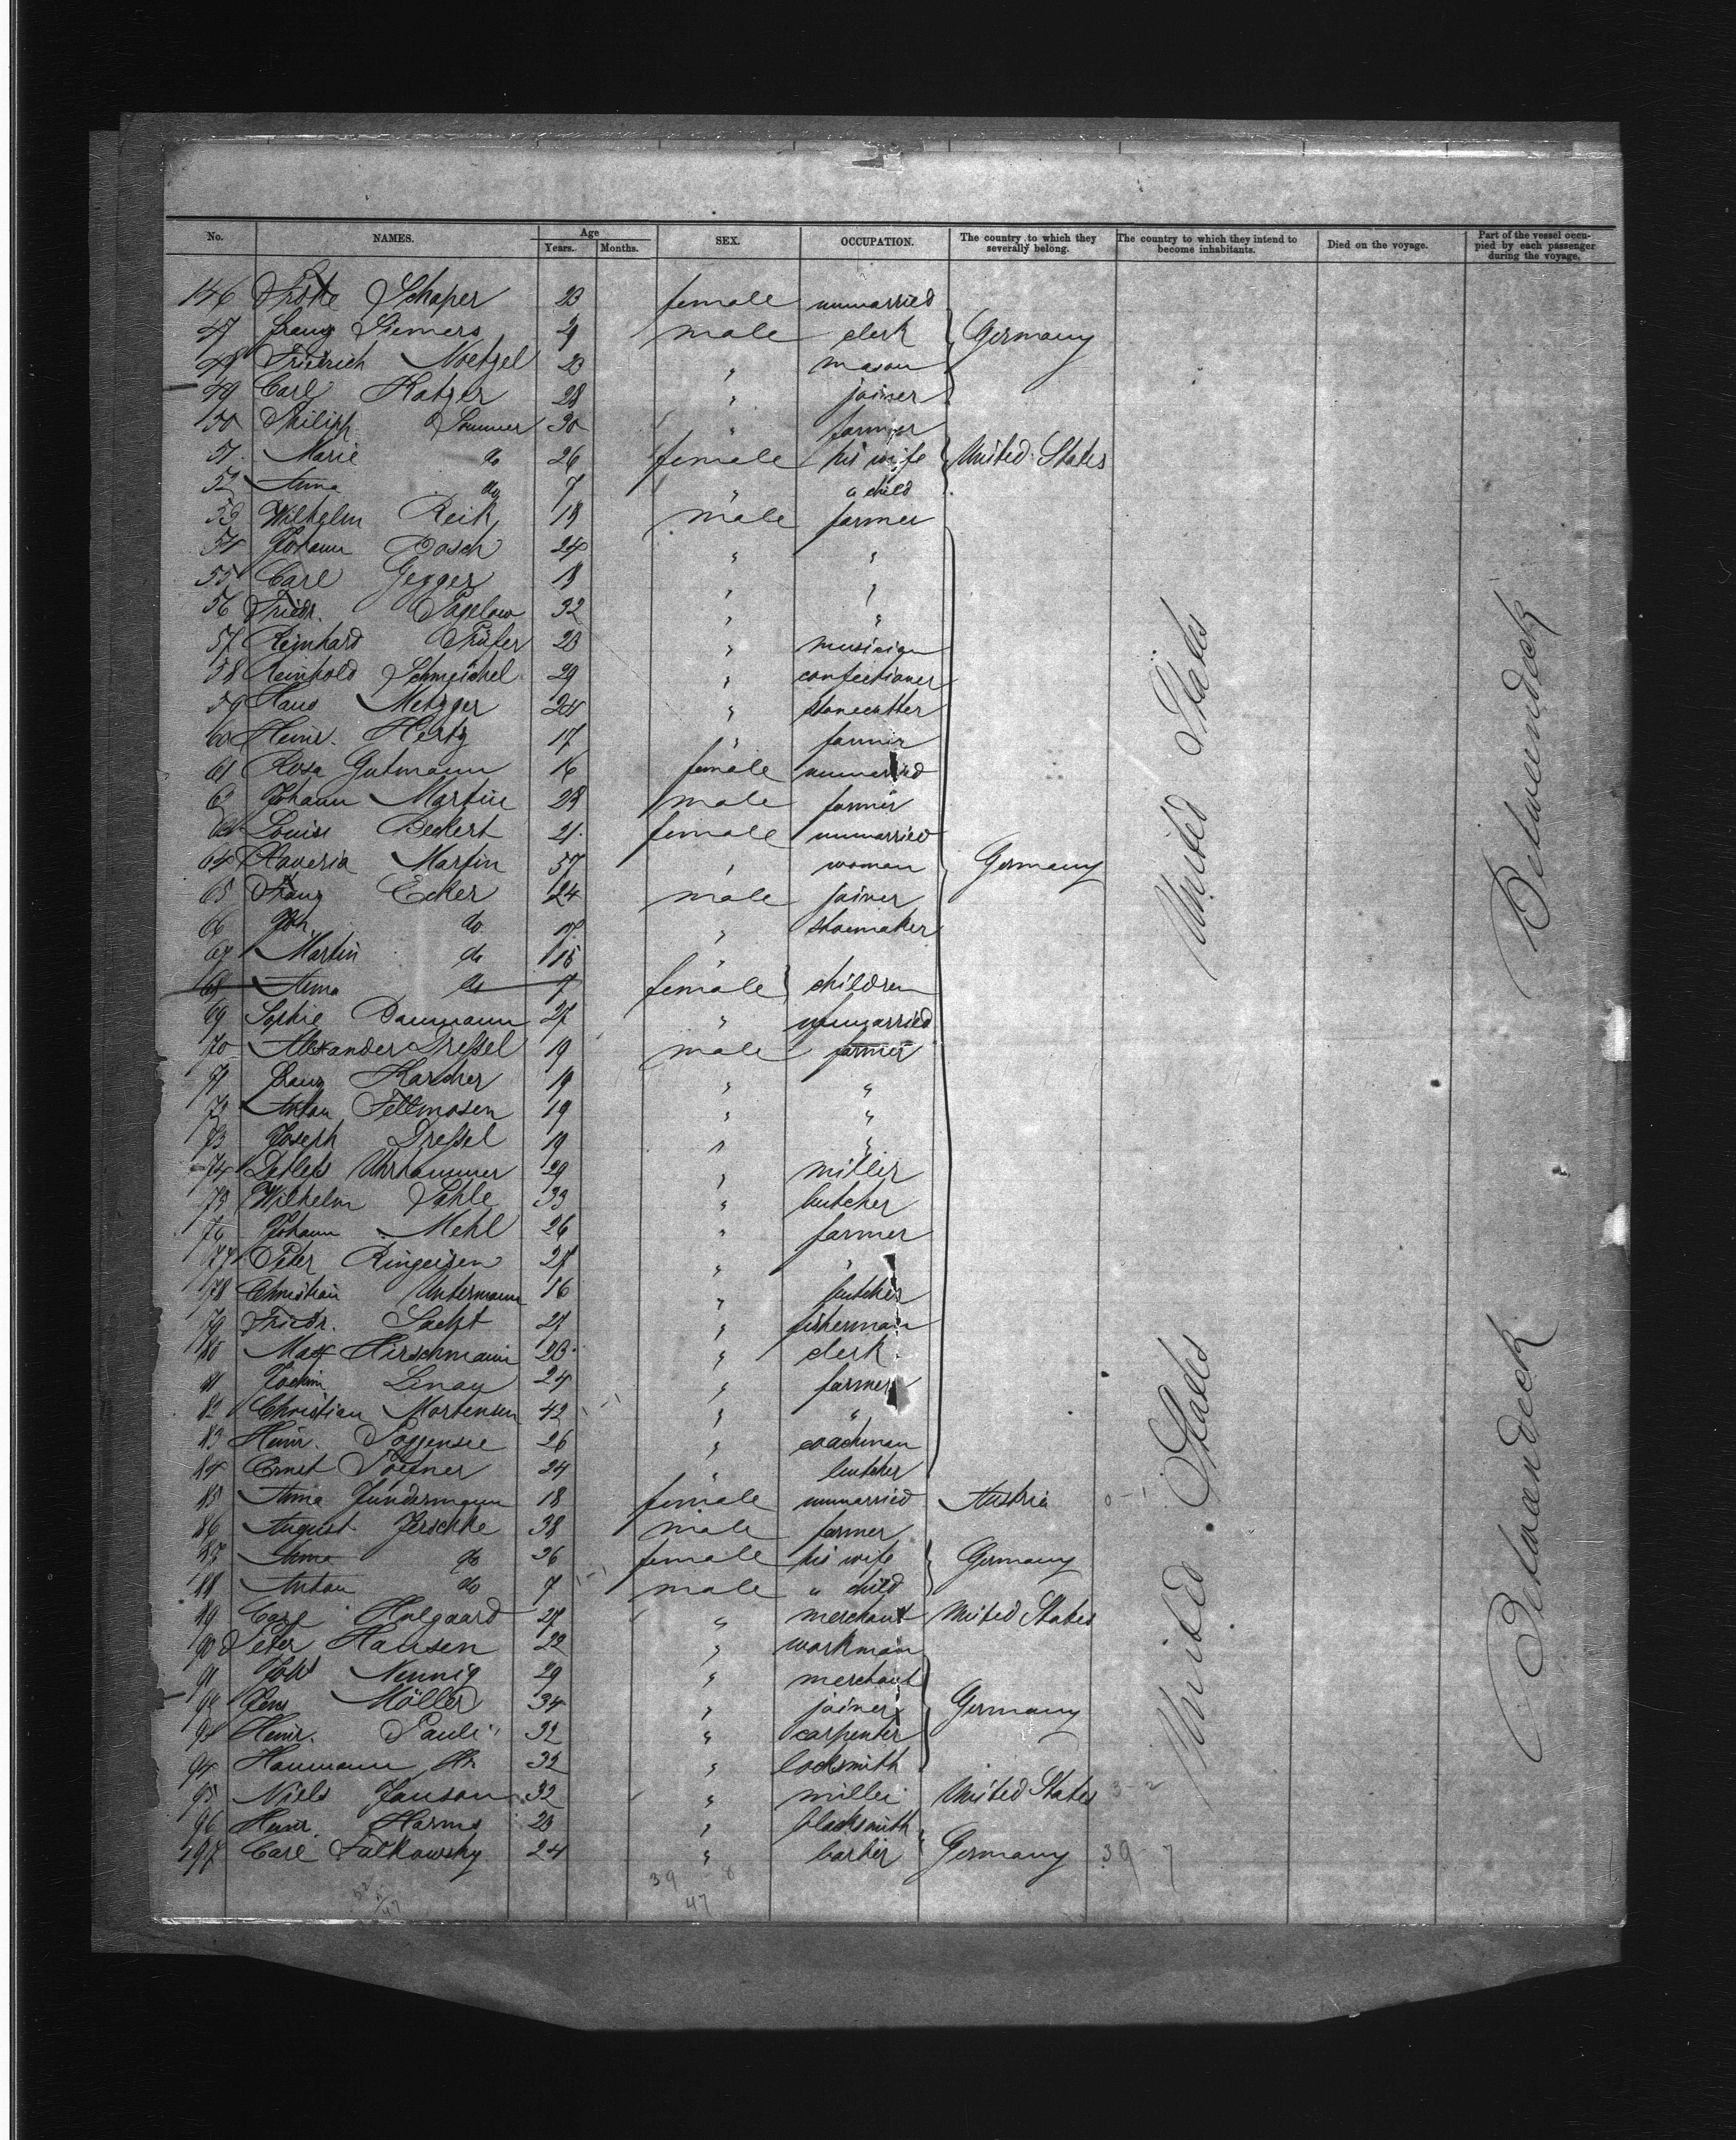 No. NAMES. Age Years. Months. SEX. OCCUPATION. The country to which they severally belong. The country to which they intend to become inhabitants. Died on the voyage. Part of the vessel occupied by each passenger during the voyage.
146 Schaper 23 female unmarried
47 Franz Siemers 29 male clerk Germany
48 Friedrich Noetzel 23 " mason
49 Carl Katzer 28 " joiner
150 Philipp Sommer 30 " farmer
51 Marie do 26 female his wife United States
52 Anna do 7 " a child
53 Wilhelm Reik 18 male farmer
54 Johann Bosch 24 " "
55 Carl Gegger 18 " "
56 Friedr. Pagelow 32 " "
57 Reinhard Prüfer 23 " musician
58 Reinhold Schmeichel 29 " confectioner
59 Hans Metzger 24 " stonecutter
60 Heinr. Hertz 17 " farmer
61 Rosa Gutmann 16 female unmarried
62 Johann Martin 28 male farmer
63 Louise Beckert 21 female unmarried
64 Xaveria Martin 57 " woman Germany
65 Franz Ecker 24 male joiner
66 Joh. do 17 " shoemaker
67 Martin do 15 "
68 Anna do 7 female children
69 Sophie Baumann 27 " unmarried
70 Alexander Dressel 19 male farmer
71 Franz Karcher 19 " "
72 Anton Fettmosen 19 " "
73 Joseph Dressel 19 " "
74 Detlef Uhrhammer 29 " miller
75 Wilhelm Sahle 33 " butcher
76 Johann Mehl 26 " farmer
77 Peter Ringeisen 27 " "
178 Christian Untermann 16 " butcher
79 Friedr. 27 " fisherman
80 Max Hirschmann 23 " clerk
81 Jochim Lenau 24 " farmer
82 Christian Mortensen 42 " "
83 Heinr. Poggensee 26 " coachman
84 Ernst 24 " butcher
85 Anna Jundermann 18 female unmarried Austria 0-1
86 August Jerschke 38 male farmer
87 Anna do 36 female his wife Germany
88 Anton do 7 male " child
89 Carl Holgaard 27 " merchant United States
90 Peter Hansen 22 " workman
91 Nennig 29 " merchant
92 Jens Möller 34 " joiner Germany
93 Heinr. Pauli 32 " carpenter
94 Haumann 32 " locksmith
95 Niels Janson 32 " miller United States 3-2
96 Heinr. Harms 23 " blacksmith
197 Carl Falkowsky 24 " barber Germany 39 7
39 8
47
United States
United States
Betweendeck
Betweendeck